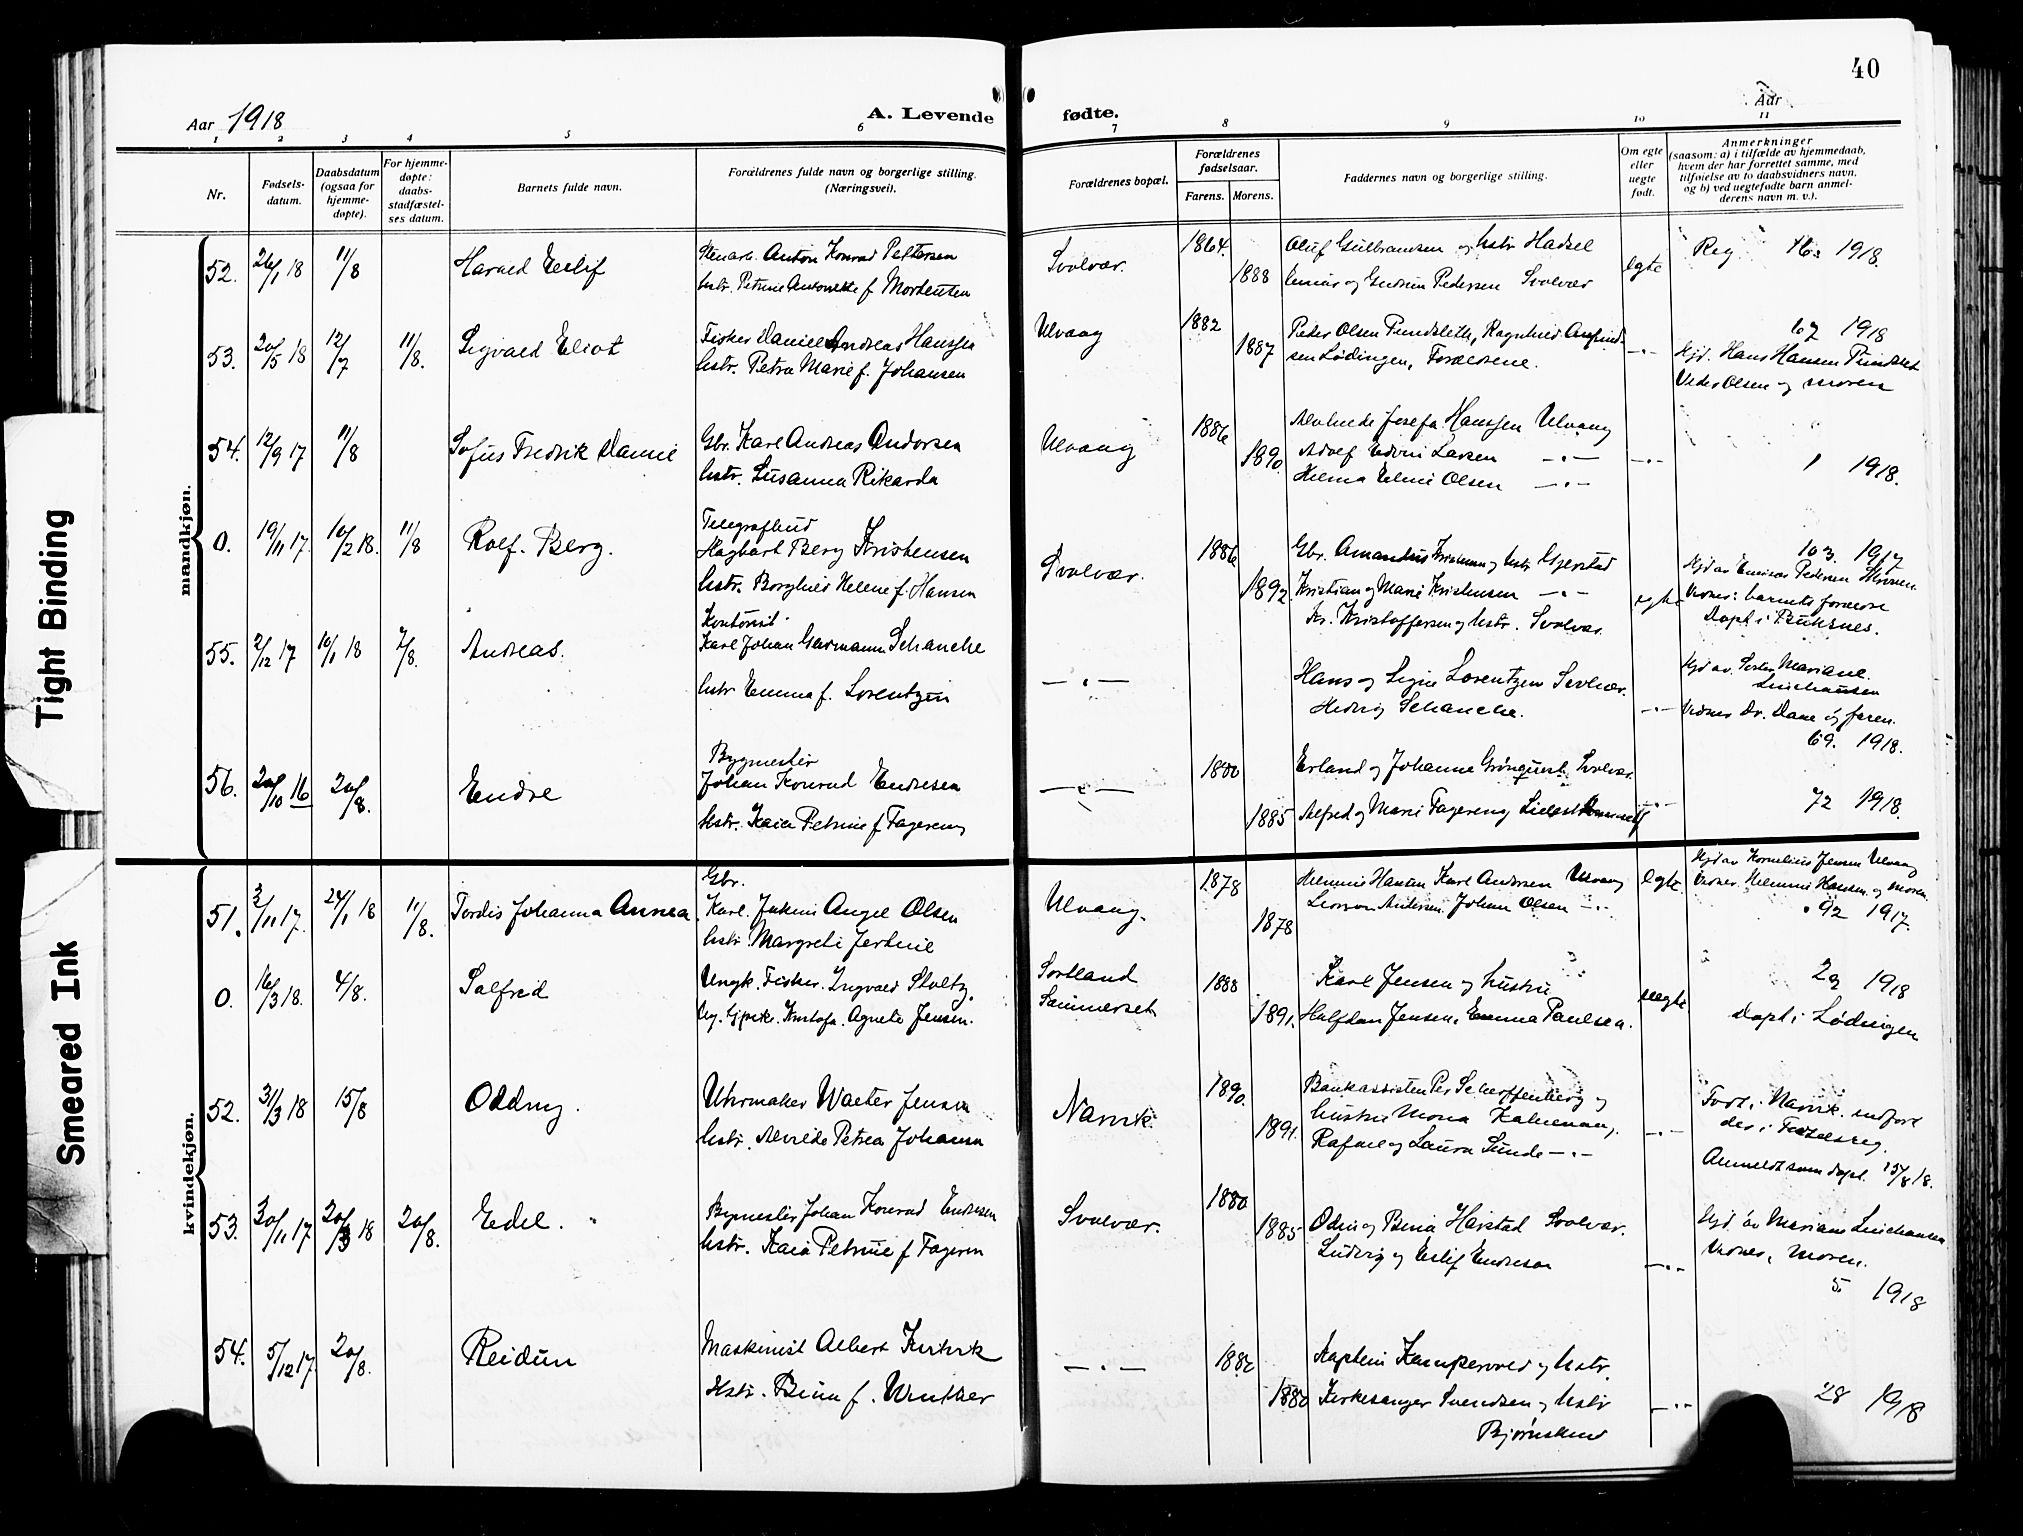 40
Aar 1918
A. Levende
fødte.
Aar
1 2 3 4 5 6 7 8 9 10 11
Nr.
Fødsels-
datum.
Daabsdatum
(ogsaa for
hjemme-
døpte).
For hjemme-
døpte:
daabs-
stadfæstel-
ses datum.
Barnets fulde navn.
Forældrenes fulde navn og borgerlige stilling.
(Næringsvei).
Forældrenes bopæl.
Forældrenes
fødselsaar.
Farens. Morens.
Faddernes navn og borgerlige stilling.
Om egte
eller
uegte
født.
Anmerkninger
(saasom: a) i tilfælde av hjemmedaab,
hvem der har forrettet samme, med
tilføielse av to daabsvidners navn,
og b) ved uegtefødte barn anmel-
derens navn m. v.).
mandkjøn.
52. 26/1 18 11/8
Harald Eilif
Stenarb. Anton Konrad Pettersen
hstr. Petrine Antonette f Mortensen
Svolvær.
1864.
1888
Oluf Gulbrandsen og hstr Hadsel
Einar og Gudrun Pedersen Svolvær
egte
Reg 16. 1918.
53. 20/5 18 12/7 11/8.
Sigvald Eliot
Fisker Daniel Andreas Hanssen
hstr. Petra Marie f. Johansen
Ulvaag
1882
1887
Peder Olsen Pundslett, Ragnhild
Lødingen, Forældrene.
—"—
67 1918
Hjd. Hans Hansen Pundslet
Peder Olsen og moren
54. 12/9 17 11/8
Sofus Fredrik Daniel
Gbr. Karl Andreas Andersen
hstr. Susanna Rikarda
Ulvaag
1886
1890
Alvhilde Josefa Hanssen Ulvaag
Adolf Edvin Larsen —"—
Helma Eline Olsen —"—
—"—
1 1918.
0. 19/11 17. 10/2 18. 11/8
Rolf. Berg.
Telegrafbud
Hagbart Berg Kristensen
hstr. Borghild Helene f. Hansen
Svolvær.
1886
1892.
Gbr. Amandus Kristensen og hstr Gjerstad
Kristian og Marie Kristensen —"—
Kr. Kristoffersen og hstr. Svolvær
egte
103. 1917
Hjd av Einar Pedersen Skroven
Vidner: barnets forældre
Døpt i Buksnes.
55. 2/12 17 10/1 18 7/8.
Andreas.
Kontorist
Karl Johan Garmann Schanche
hstr Emma f. Lorentzen
—"—
Hans og Signe Lorentzen Svolvær.
Hedvig Schanche.
—"—
Hjd av. Søster Mariane
Linchausen
Vidner Dr. Dane og faren.
69. 1918.
56. 20/10 16 20/8.
Endre
Bygmester
Johan Konrad Endresen
hstr. Kaia Petrine f Fagereng
—"—
1880
1885
Erland og Johanne Grönquist Svolvær.
Alfred og Marie Fagereng
—"—
72 1918.
kvindekjøn.
51. 3/11 17. 24/1 18 11/8.
Tordis Johanna Annea
Gbr.
Karl Jakim Angel Olsen
hstr. Margrete Jertine
Ulvaag.
1878
1878
Helmine Hansen Karl Andersen Ulvaag
Andersen Johan Olsen —"—
egte
Hjd av Kornelius Jensen Ulvaag
Vidner. Helmine Hansen og moren
92 1917.
0. 16/3 18. 4/8.
Salfrid
Ungk. Fisker. Ingvald Stoltz.
Ug. Gpike. Kristofa. Agnete Jensen.
Sortland
Sannerset
1888
1891.
Karl Jensen og hustru
Halfdan Jensen. Emma Paulsen.
uegte
29 1918
Døpt i Lødingen
52. 31/3 18 15/8
Oddny.
Uhrmaker Walter Jensen
hstr. Alvilde Petrea Johansen
Narvik
1890.
1891.
Bankassistent Per Scharffenberg og
hustru Mona Kabelvaag.
Rafael og Laura Sunde —"—
—"—
Født i Narvik. indført
der i Fødselsreg.
Anmeldt som døpt. 15/8 18.
53. 30/11 17 20/3 18 20/8.
Edel.
Bygmester Johan Konrad Endresen
hstr. Kaia Petrine f Fageren
Svolvær.
1880
1885
Odin og Bina Harstad Svolvær.
Ludvig og Eilif Endresen
—"—
Hjd. av Mariane Linchausen
Vidner, moren.
5. 1918
54. 5/12 17. 20/8.
Reidun
Maskinist Albert
Hstr. Bina f. Winther
—"—
1882
1880
Kaptein og hstr.
Kirkesanger Svendsen og hstr
—"—
28 1918
Tight Binding
Smeared Ink